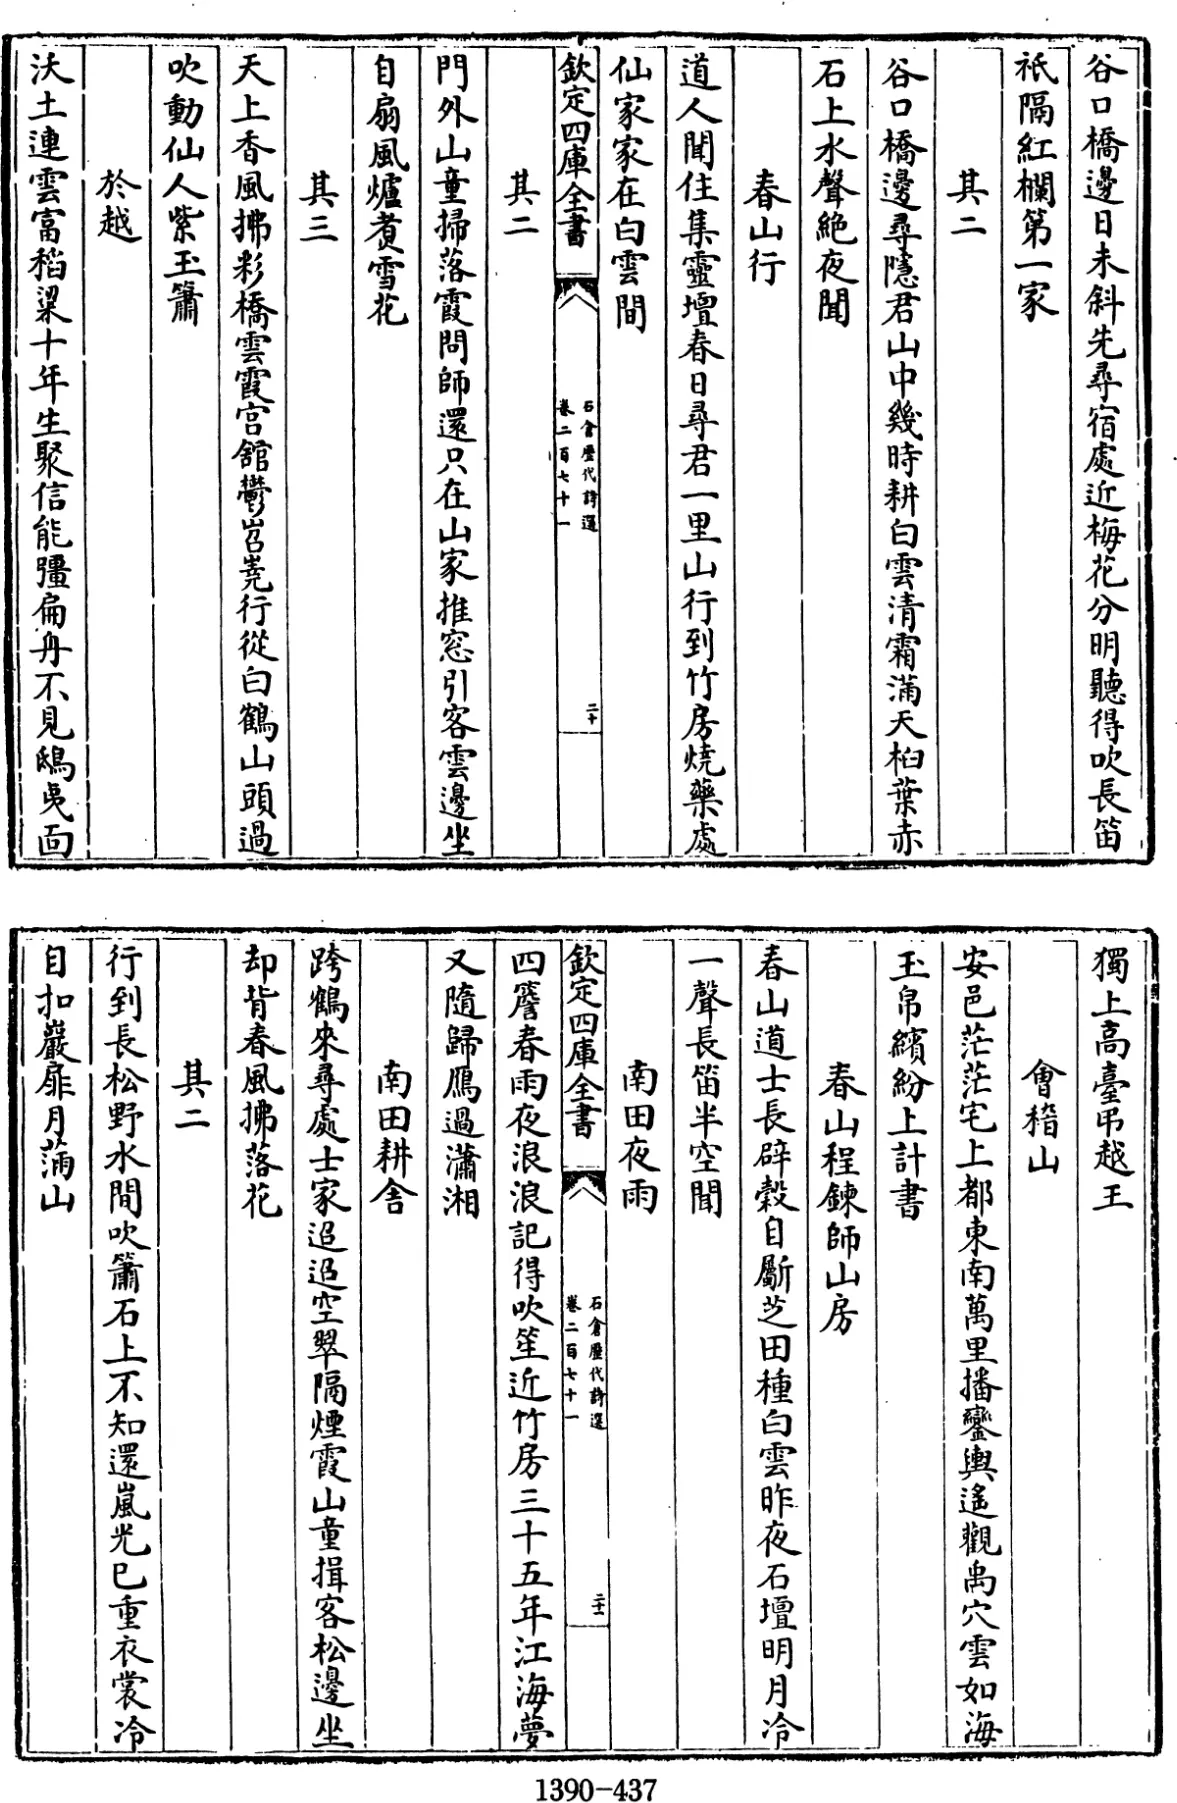 谷口橋邊日未斜先尋宿處近梅花分明聽得吹長笛
祇隔紅欄第一家
其二
谷口橋邊尋隱君山中幾時耕白雲清霜滿天桕葉赤
石上水聲絶夜聞
春山行
道人聞住集靈壇春日尋君一里山行到竹房燒藥處
仙家家在白雲間
欽定四庫全書
石倉歷代詩選
卷二百七十一
二十
其二
門外山童掃落霞問師還只在山家推窓引客雲邊坐
自扇風爐煑雪花
其三
天上香風拂彩橋雲霞宫舘鬱岧嶤行從白鶴山頭過
吹動仙人紫玉簫
於越
沃土連雲富稻粱十年生聚信能彊扁舟不見鴟夷面
獨上高臺弔越王
會稽山
安邑茫茫宅上都東南萬里播鑾輿遙觀禹穴雲如海
玉帛繽紛上計書
春山程鍊師山房
春山道士長辟穀自斸芝田種白雲昨夜石壇明月冷
一聲長笛半空聞
南田夜雨
欽定四庫全書
石倉歷代詩選
卷二百七十一
二十一
四簷春雨夜浪浪記得吹笙近竹房三十五年江海夢
又隨歸鴈過瀟湘
南田耕舍
跨鶴來尋處士家迢迢空翠隔煙霞山童揖客松邊坐
却背春風拂落花
其二
行到長松野水間吹簫石上不知還嵐光已重衣裳冷
自扣巖扉月滿山
1390-437